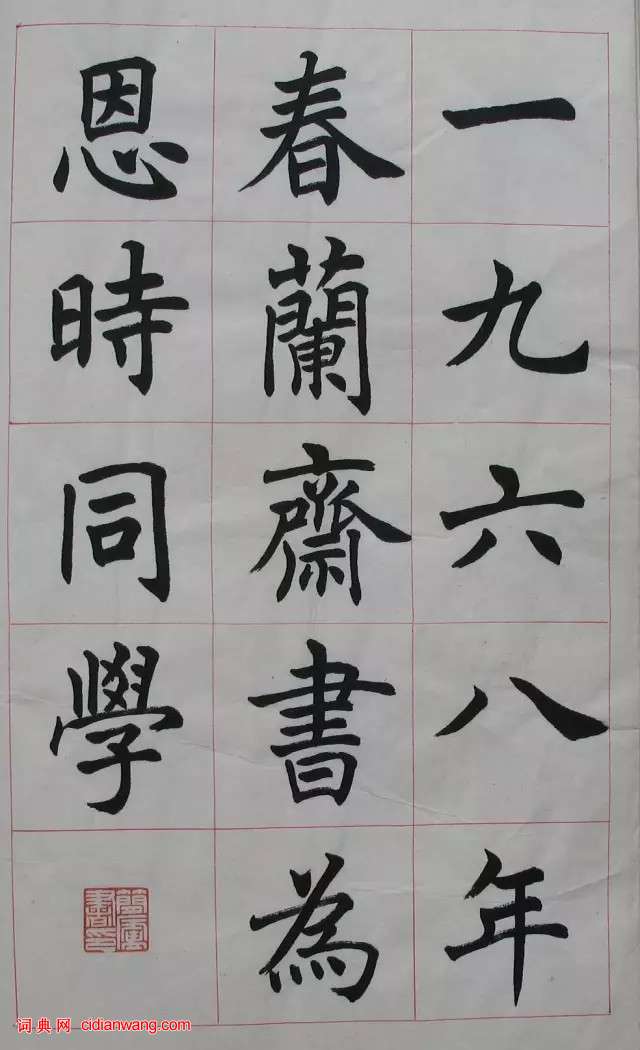 一九六八年
春蘭齋書為
恩時同學
词典网 cidianwang.com